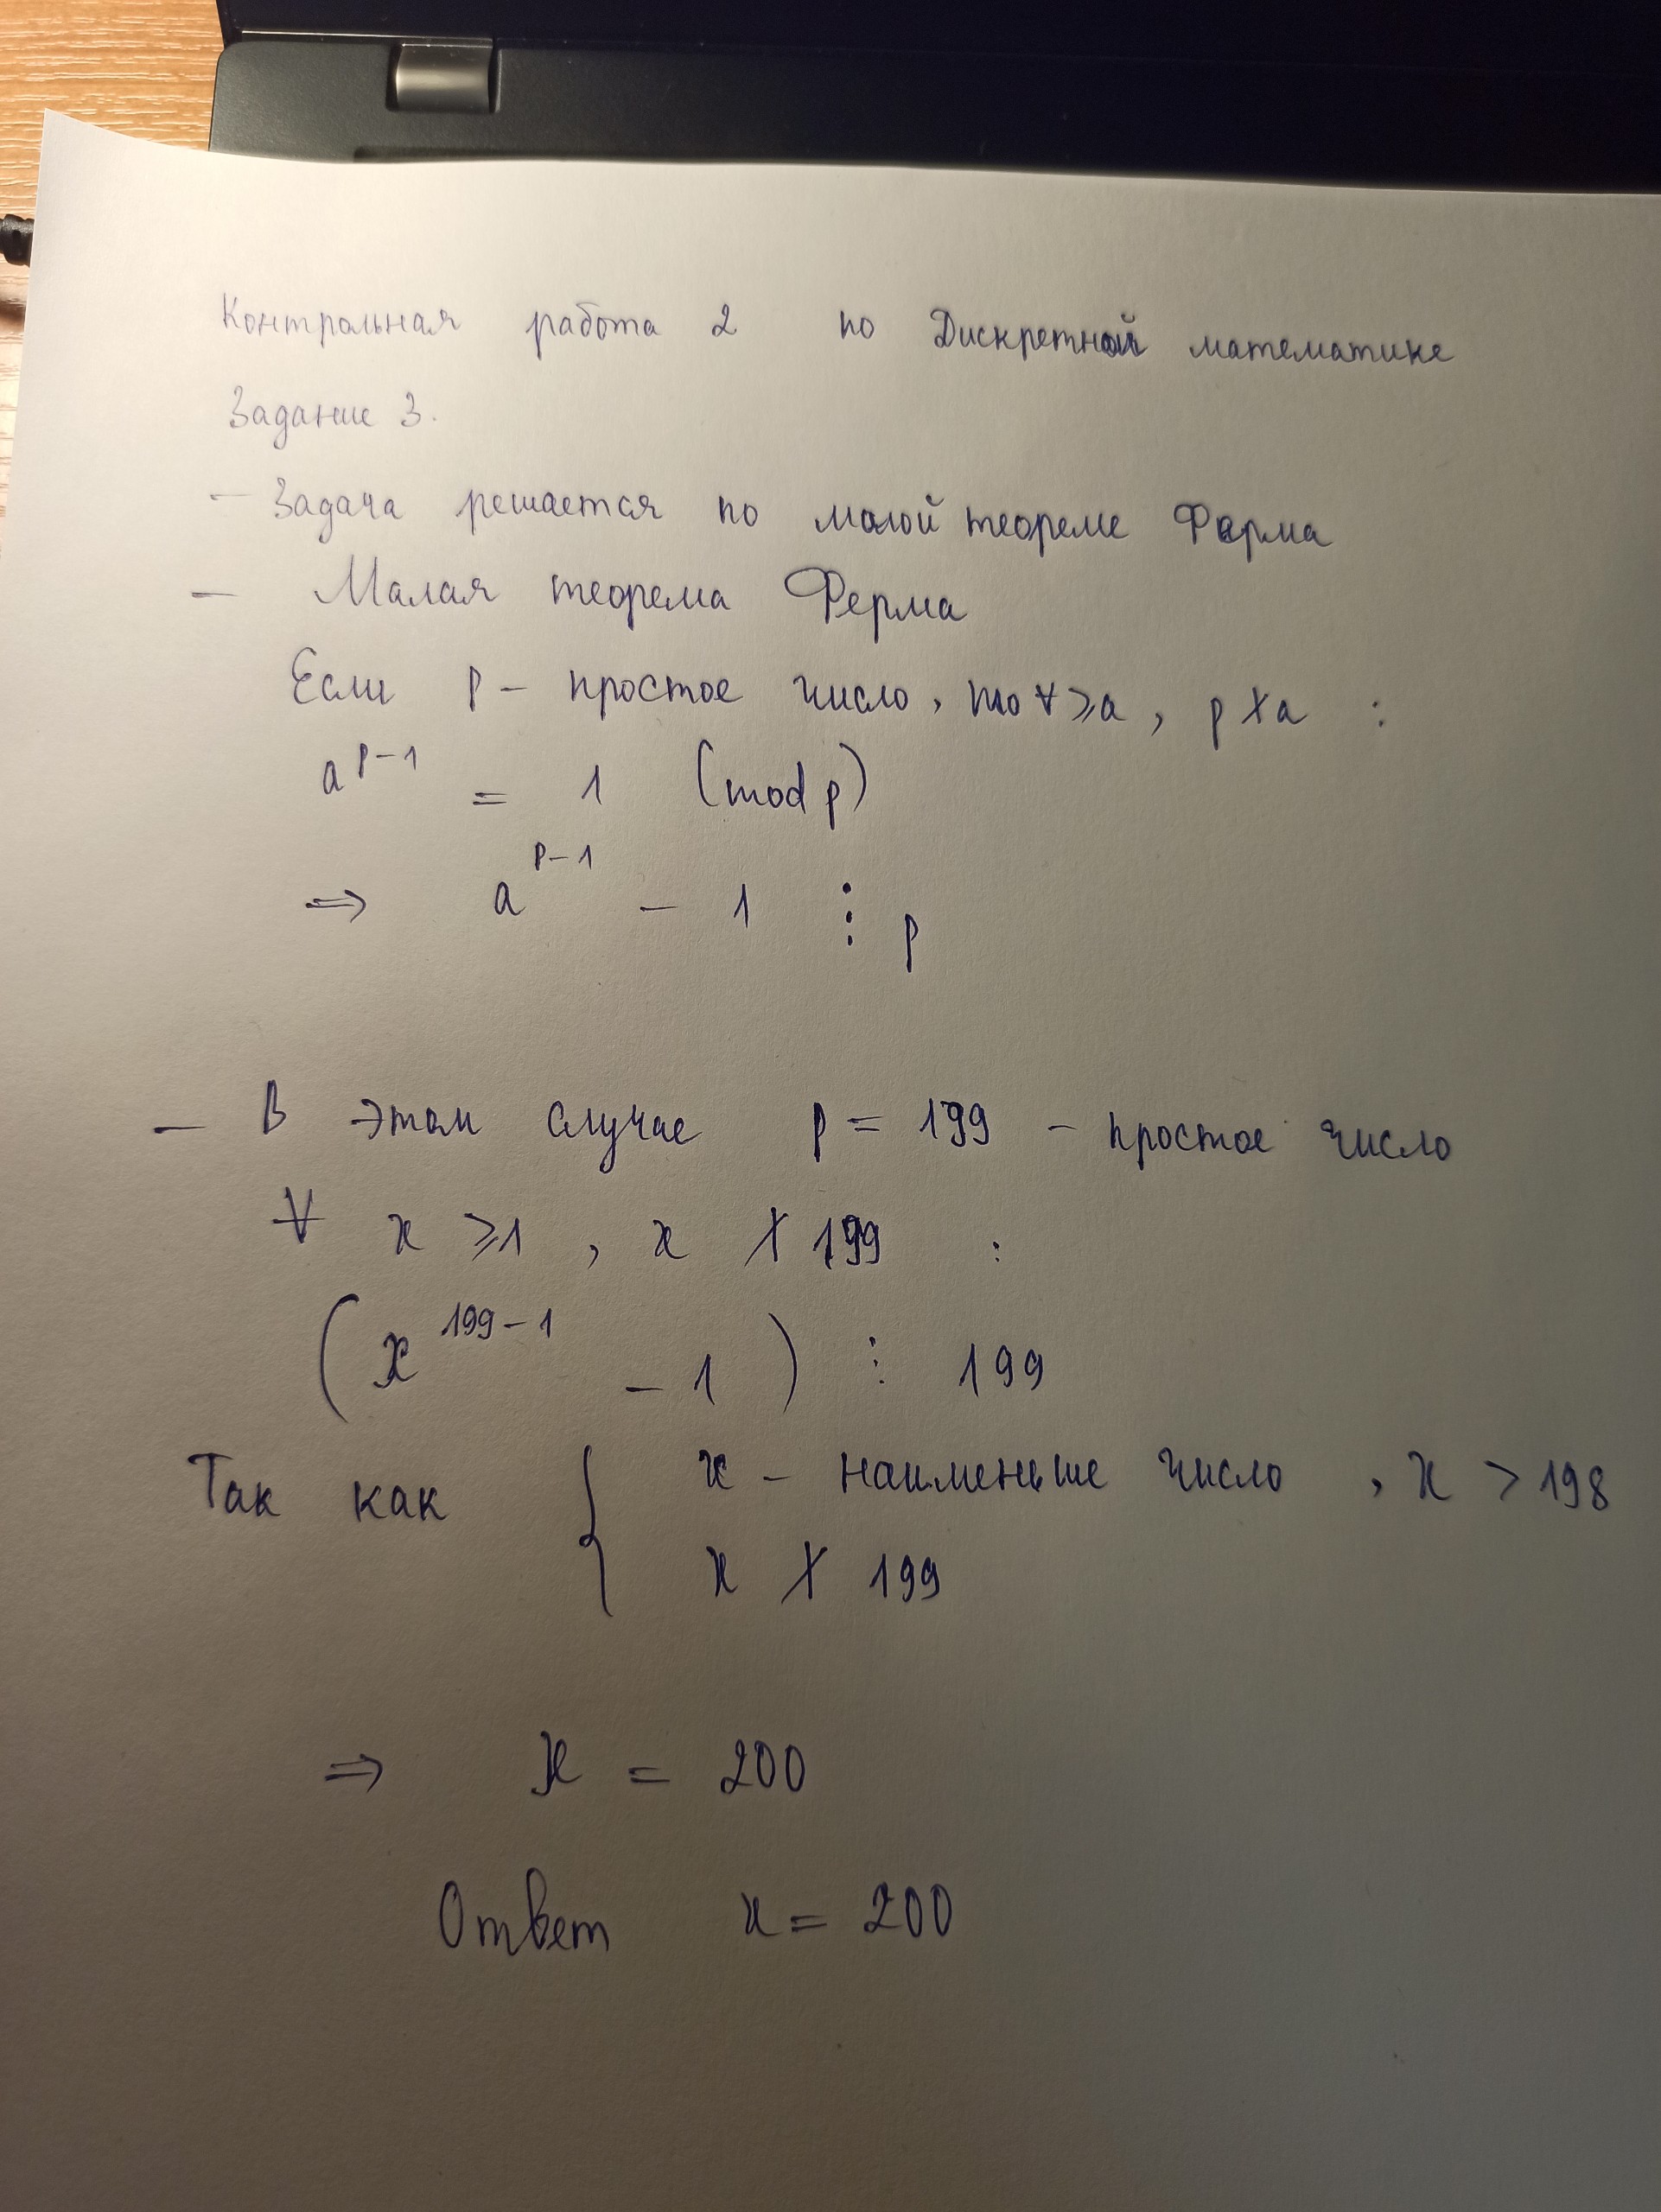 Контрольная работа 2 по Дискретной математике
Задание 3.
— Задача решается по малой теореме Ферма
— Малая теорема Ферма
Если p – простое число, то ∀ ≥ a, p ∤ a :
a^(p-1) = 1 (mod p)
⇒ a^(p-1) – 1 ⋮ p
— В этом случае p = 199 – простое число
∀ x ≥ 1, x ∤ 199 :
(x^(199-1) – 1) ⋮ 199
Так как { x – наименьше число, x > 198
x ∤ 199
⇒ x = 200
Ответ x = 200